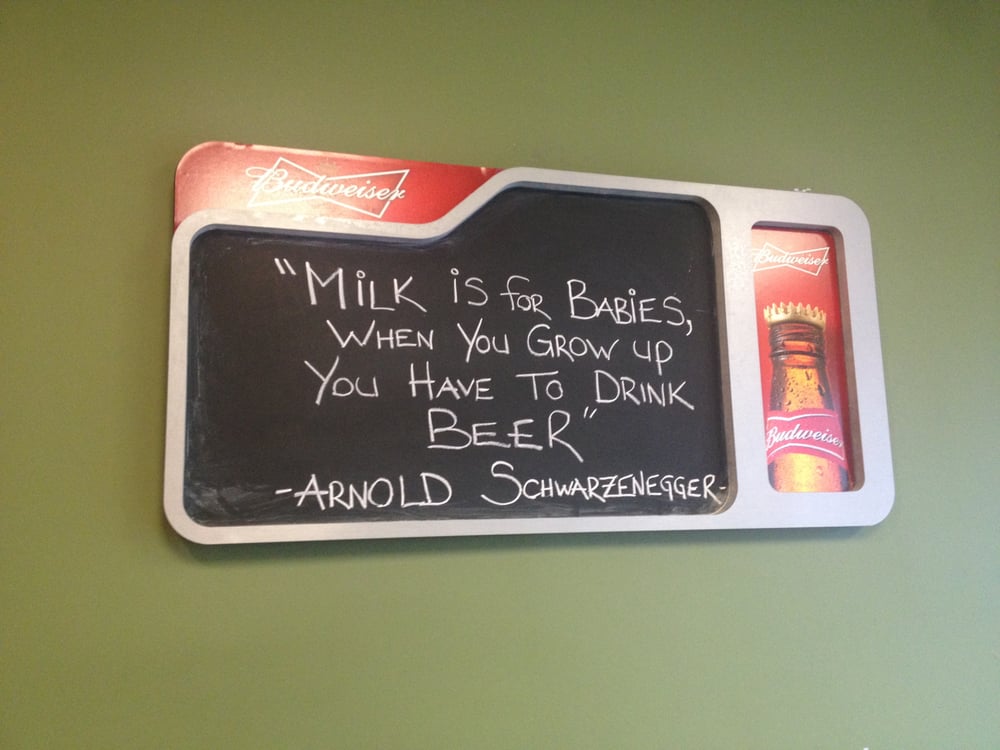 Budweiser
"MiLK iS for BABiES,
WHEN You GROW up
You HAVE To DRINK
BEER"
-ARNOLD SCHWARZENEGGER-
Budweiser
Budweiser